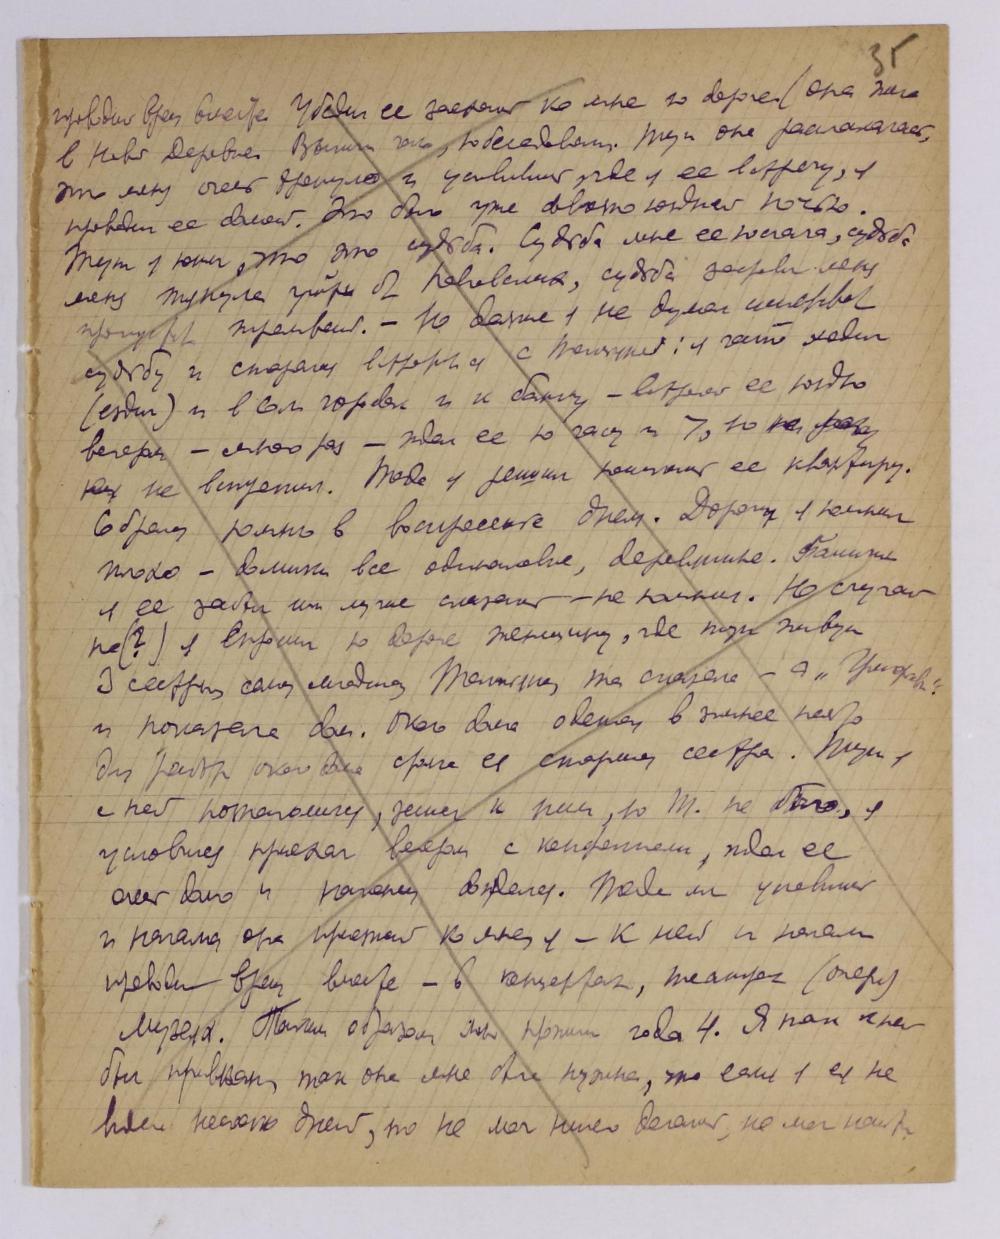 35
проводил время вместе. Убедил ее заехать ко мне по дороге (она жила
в Новой Деревне. Выпили чаю, побеседовали. Тут она расплакалась,
это меня очень тронуло и условились, где я ее встречу, я
проводил ее домой. Это было уже довольно поздней ночью.
Тут я понял, что это судьба. Судьба мне ее послала, судьба
меня толкнула уйти от, судьба заставила меня
пропустить трамвай. – Но дальше я не думал испортить
судьбу и старался встретиться с Татьяной: я часто ходил
(ездил) и в городок и к банку – встречал ее поздно
вечером – много раз – ждал ее по часу и 7, но ни разу
не встретил. Тогда я решил поискать ее квартиру.
Собрался к ним в воскресенье днем. Дорогу я помнил
плохо – домики все одинаковые, деревянные. Фамилию
я ее забыл или лучше сказать – не помнил. Но случай
но (?) я спросил по дороге женщину, где тут живут
3 сестры, самая младшая Татьяна, та сказала – а „
и показала дом. Около дома одетая в зимнее пальто
около дома стояла ее старшая сестра. Тут я
с ней поздоровался, зашел к ним, но Т. не было, я
условился приехать вечером с конфетами, ждал ее
очень долго и наконец дождался. Тогда мы условились
и начала она приезжать ко мне, я – к ней и начали
проводить время вместе – в концертах, театрах (опера)
музеях. Таким образом мы прожили года 4. Я так к ней
был привязан, так она мне была нужна, что если я ее не
видел несколько дней, то не мог ничего делать, не мог найти